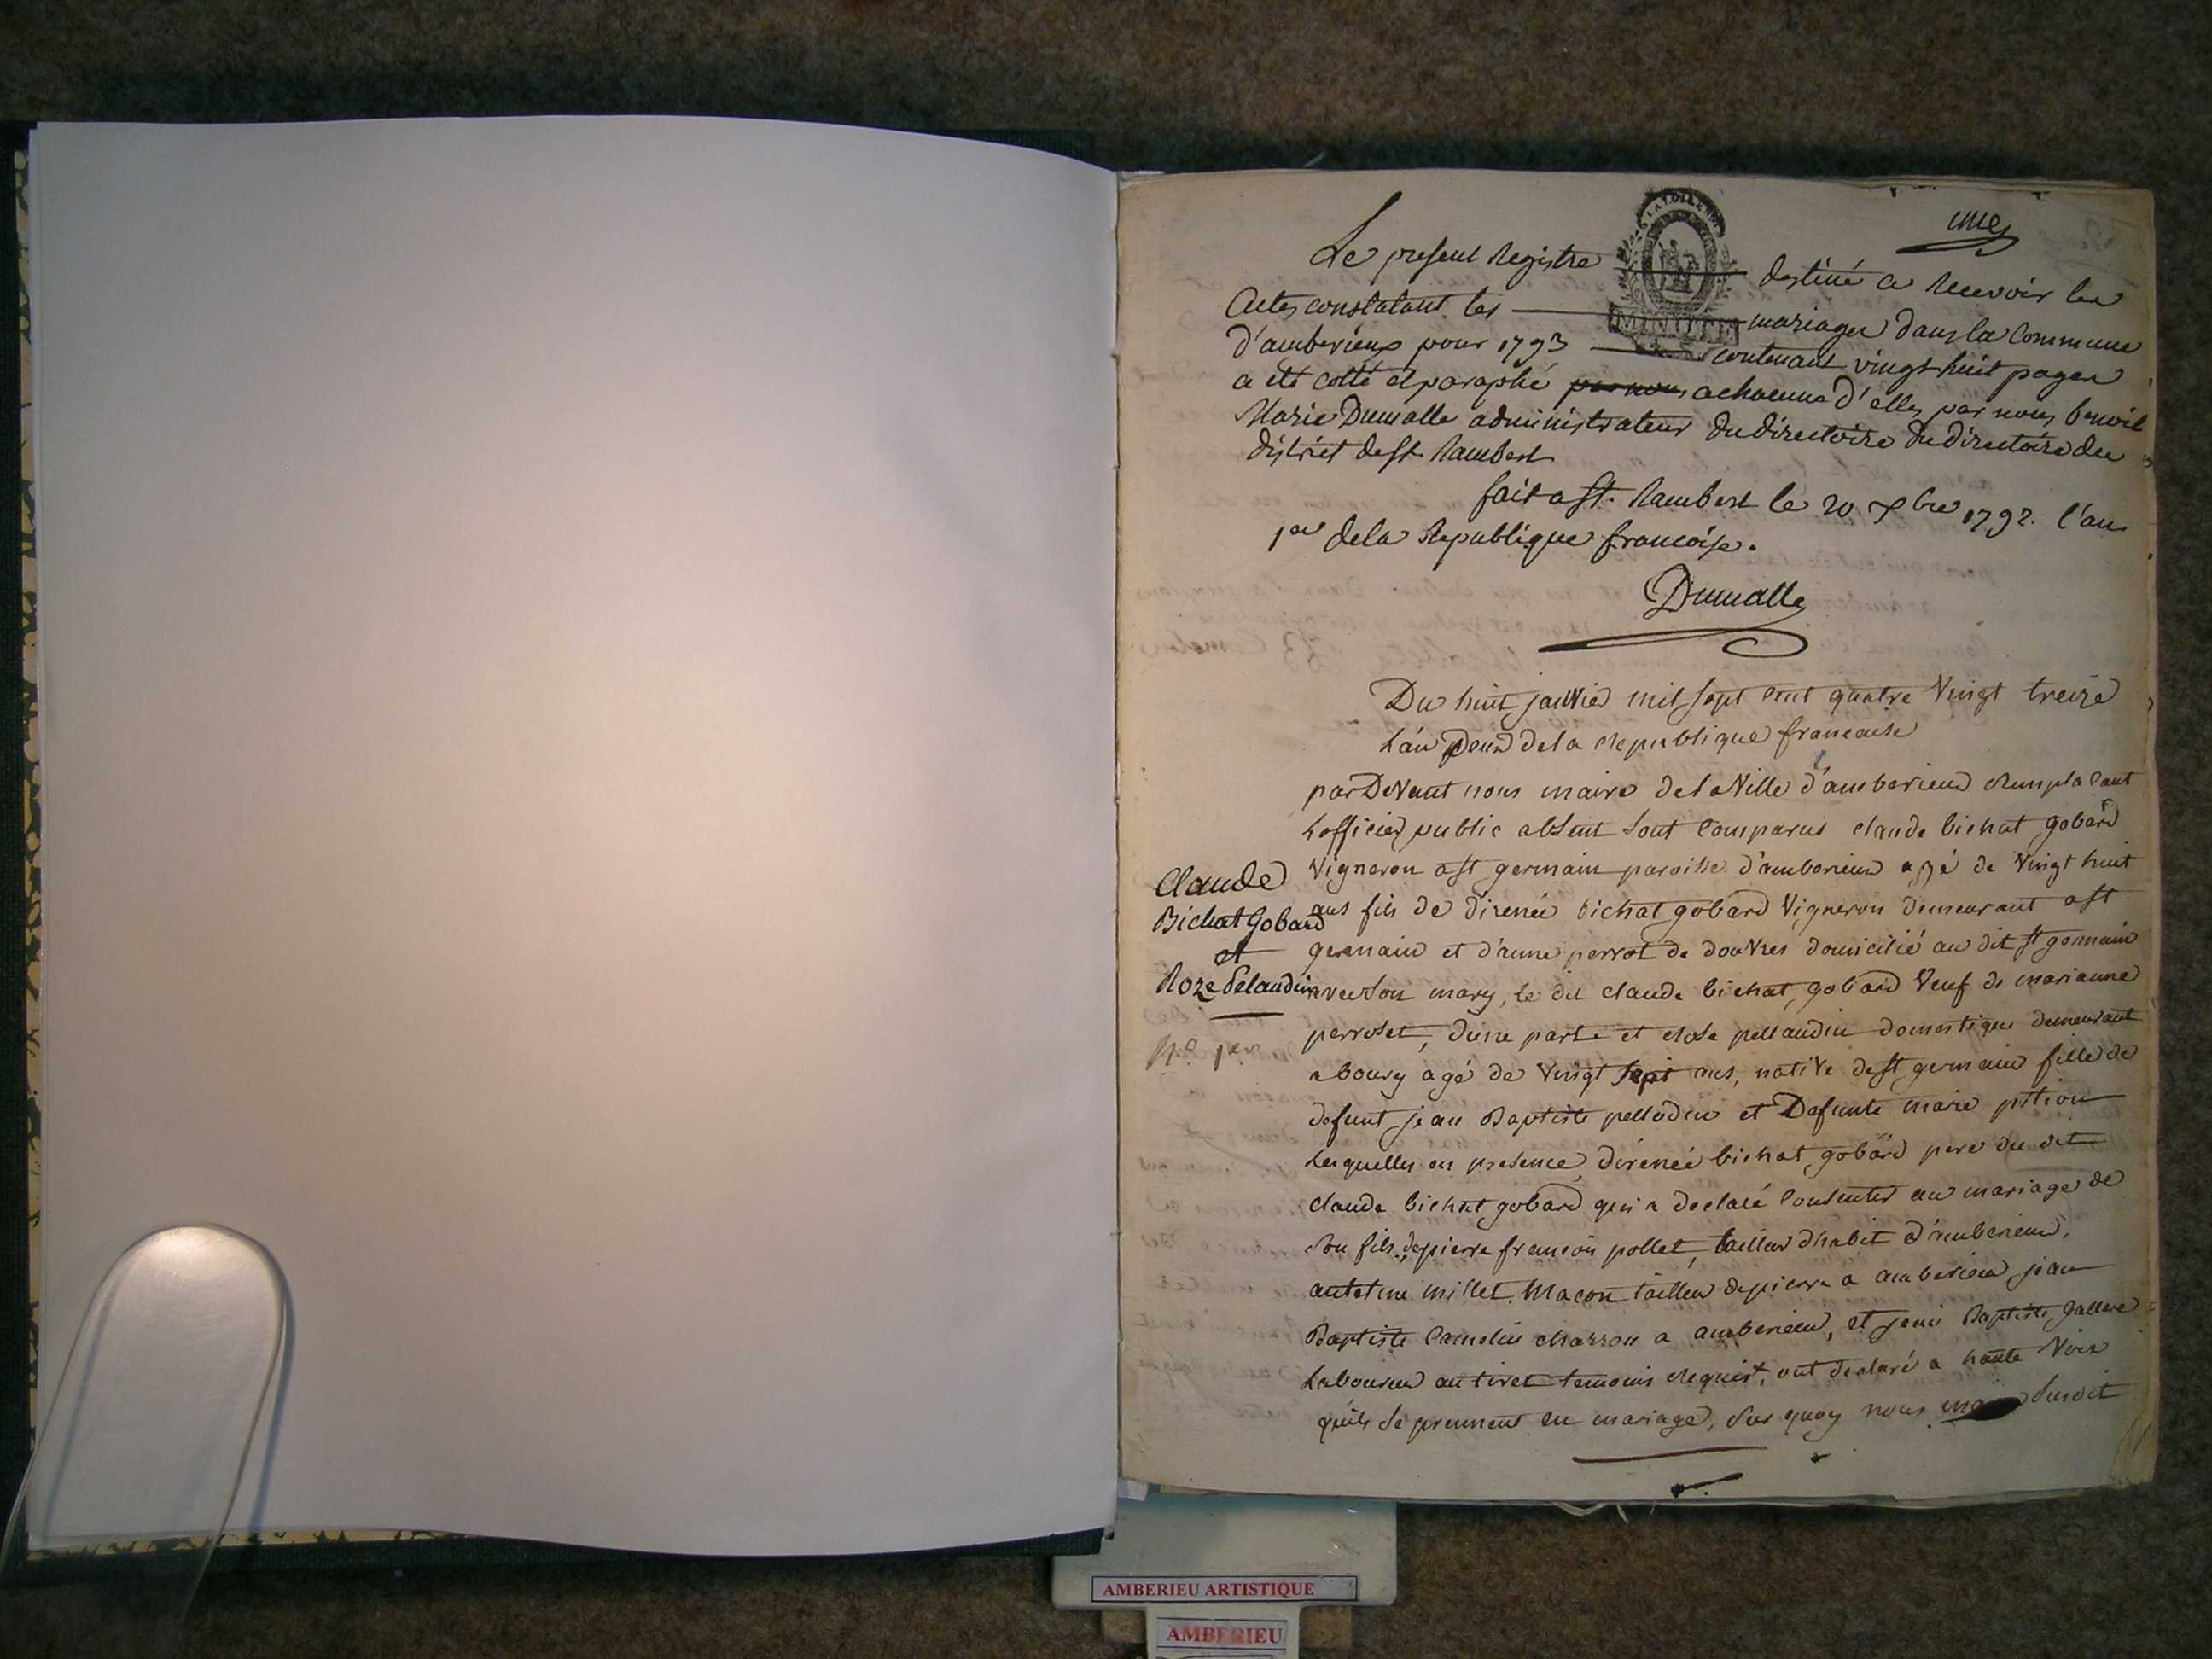 une
Le present Registre destiné a recevoir les
Actes constatant les mariages dans la Commune
d'amberieux pour 1793 contenant vingt huit pages
a été cotté et paraphé par nous a chacune d'elles par nous benoit
Marie Dumalle administrateur du directoire du directoire du
district de st Rambert
fait a st. Rambert le 20 Xbre 1792. l'an
1er de la Republique françoise.
Dumalle
Du huit janvier mil sept cent quatre vingt treize
L'an Deux de la republique francaise
par Devant nous maire de la Ville d'amberieux remplacant
L'officier public absent sont comparus claude bichat gobard
Vigneron a st germain paroisse d'amberieux agé de vingt huit
ans fils de d'irenée bichat gobard Vigneron demeurant a st
germain et d'anne perrot de douvres domicilié au dit st germain
avec son mary, le dit claude bichat gobard veuf de marianne
perroset, d'une parte et rose pellaudin domestique demeurant
a bourg agé de vingt sept ans, native de st germain fille de
defunt jean Baptiste pellodin et Defunte marie pition
Lesquelles en presence d'irenée bichat gobard pere du dit
claude bichat gobard qui a declaré consenter au mariage de
son fils, de pierre francois pollet, tailleur d'habit d'amberieux,
antoine millet. Macon tailleur de pierre a amberieux jean
Baptiste Camelin charron a amberieux, et jean Baptiste gallere
Laboureur au tiret temoins requist, ont declaré a haute Voix
qu'ils se prennent en mariage, sur quoy nous susdit
Claude
Bichat Gobard
et
Roze Pelaudin
No 1er
MINUTE
AMBERIEU ARTISTIQUE
AMBERIEU